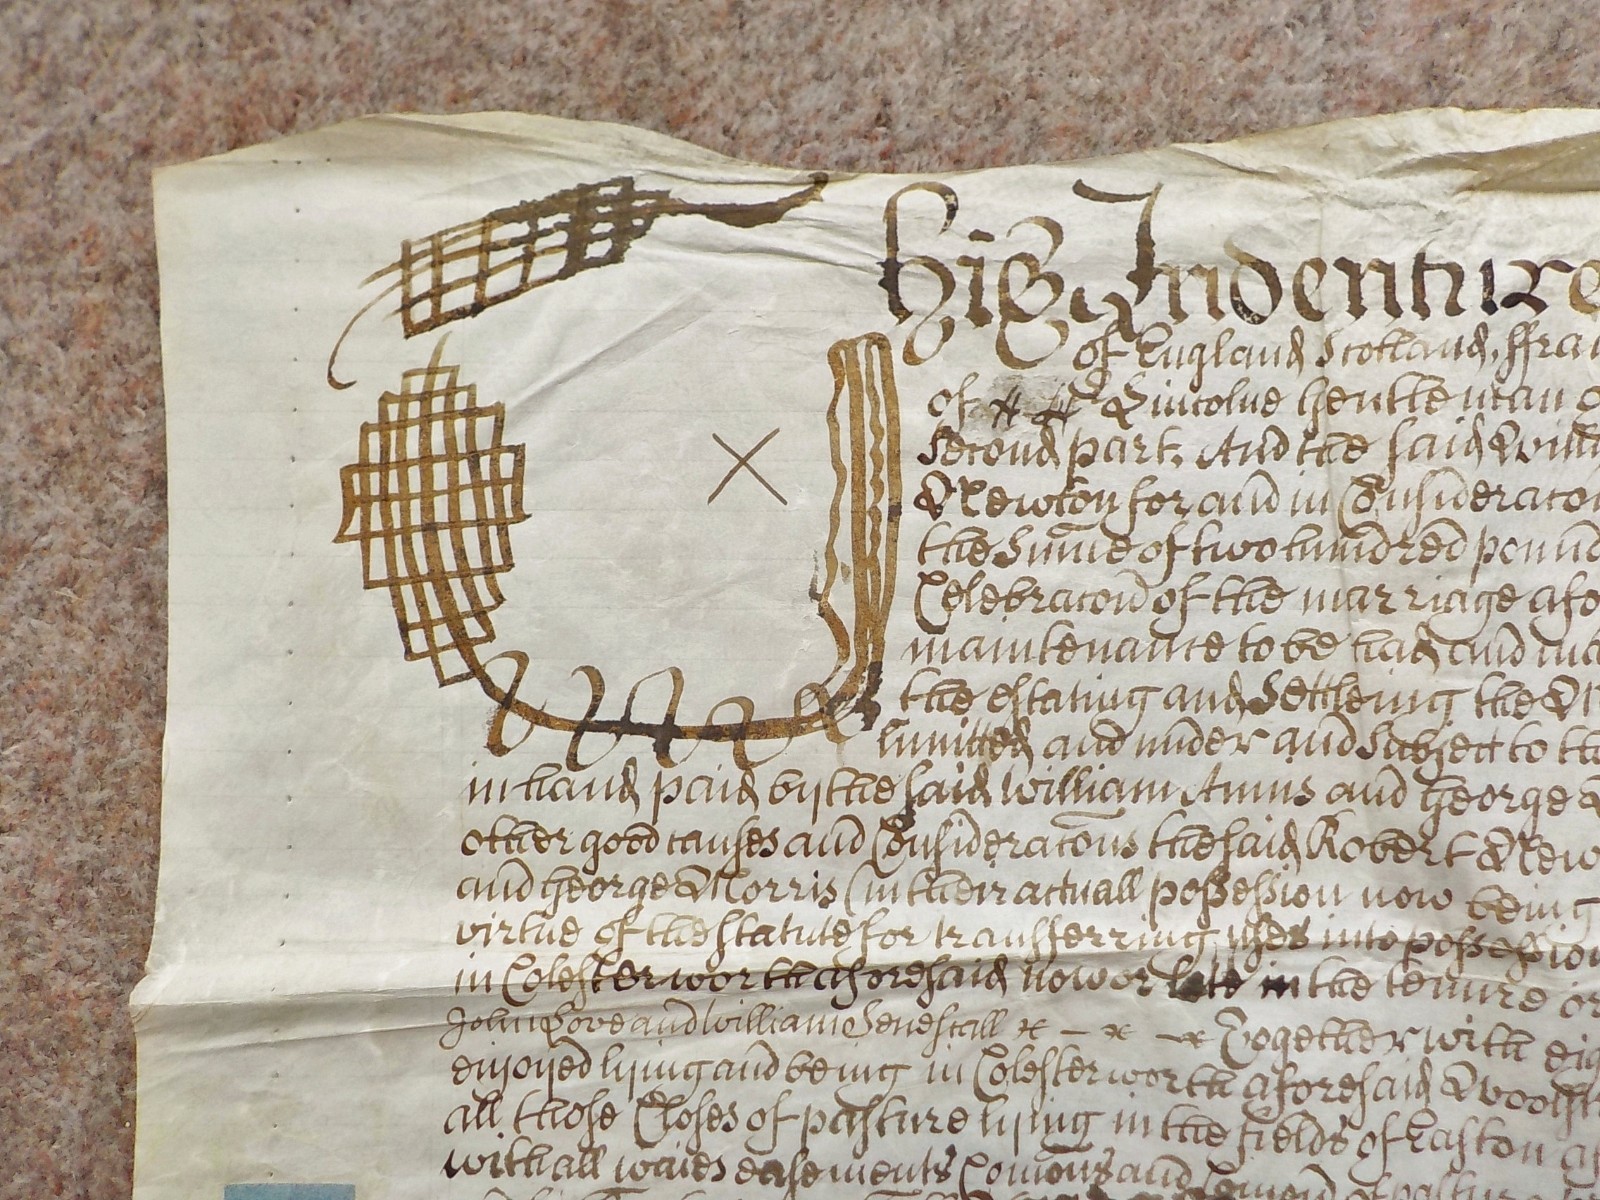 This Indenture
of England Scotland, ffra
of Lincolne Gentleman
Second part. And the said Will
Newton for and in Consideracon
the Sume of two hundred pound
Celebracon of the marriage afo
maintenance to be had and ma
the estating and Settleing the
limitted and under and Subject to th
in hand paid by the said William Annis and George
other good causes and Consideracons the said Robert New
and George Morris (in their actuall possession now being
virtue of the statute for transferring uses into possession
in Colesterworth aforesaid now or late in the tenure or
John Love and William Senescall Together with eig
enjoyed lying and being in Colesterworth aforesaid Woolst
all those Closes of pasture lying in the fields of Easton
with all waies easements Comons and